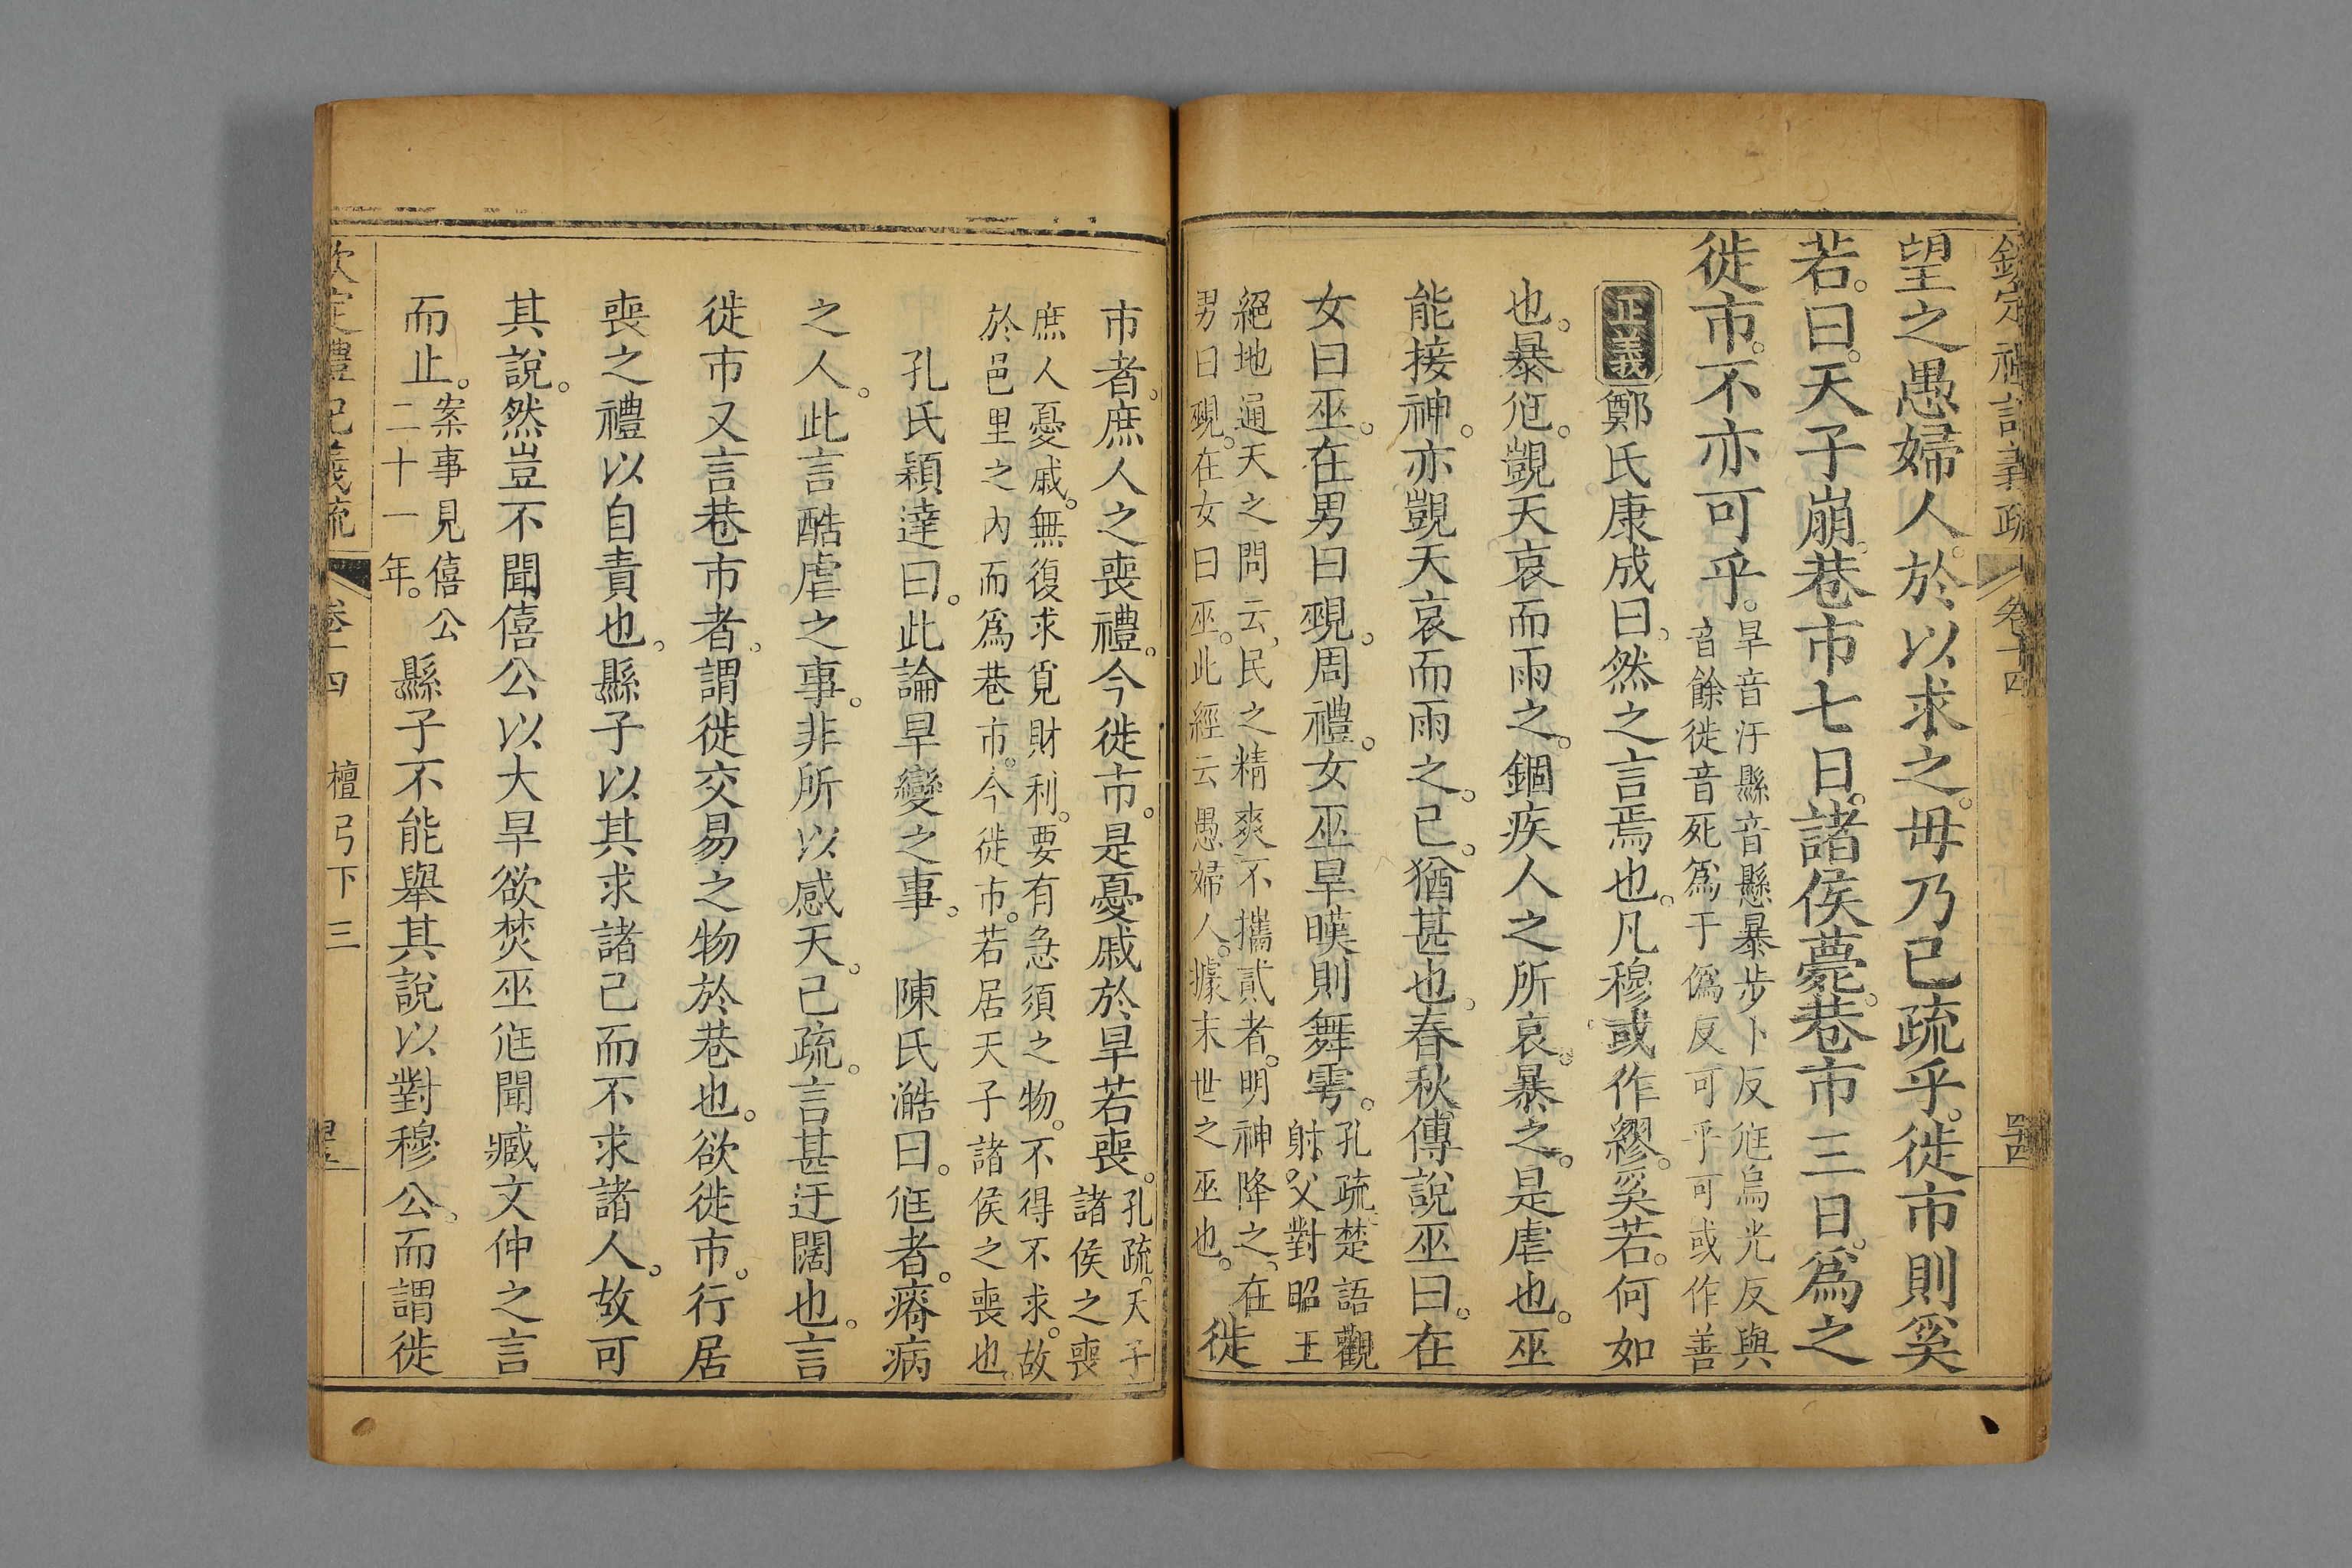 欽定禮記義疏 卷十四
望之愚婦人。於以求之。毋乃已疏乎。徙市則奚
若。曰。天子崩。巷市七日。諸侯薨。巷市三日。爲之
徙市。不亦可乎。
旱音汗縣音懸暴步卜反尫烏光反與
音餘徙音死爲于僞反可乎可或作善
正義鄭氏康成曰。然之言焉也。凡穆或作繆。奚若。何如
也。暴尫。覬天哀而雨之。錮疾人之所哀。暴之。是虐也。巫
能接神。亦覬天哀而雨之。已。猶甚也。春秋傳說巫曰。在
女曰巫。在男曰覡。周禮。女巫旱暵則舞雩。
孔疏。楚語觀
射父對昭王
絕地通天之問云、民之精爽不攜貳者。明神降之、在
男曰覡。在女曰巫。此經云愚婦人。據末世之巫也。
徙
市者。庶人之喪禮。今徙市。是憂戚於旱若喪。
孔疏。天子
諸侯之喪
庶人憂戚。無復求覓財利。要有急須之物。不得不求。故
於邑里之內而爲巷市。今徙市。若居天子諸侯之喪也。
孔氏穎達曰。此論旱變之事。 陳氏澔曰。尫者。瘠病
之人。此言酷虐之事。非所以感天。已疏。言甚迂闊也。言
徙市又言巷市者。謂徙交易之物於巷也。欲徙市。行居
喪之禮以自責也。縣子以其求諸己而不求諸人。故可
其說。然豈不聞僖公以大旱欲焚巫尫聞臧文仲之言
而止。
案事見僖公
二十一年。
縣子不能舉其說以對穆公。而謂徙
卷十四 檀弓下三